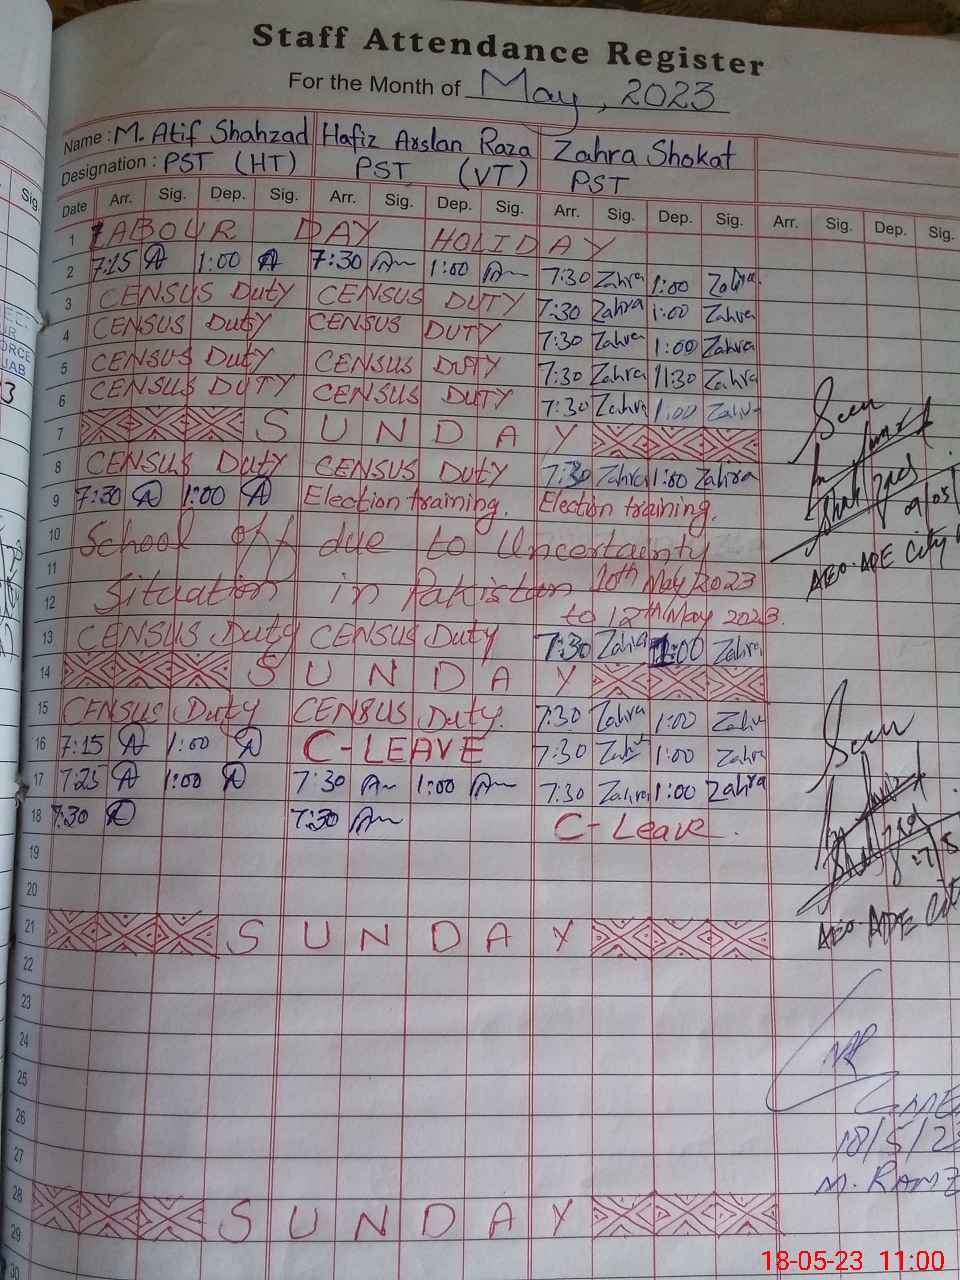 Staff Attendance Register
For the Month of May, 2023
Name : M. Atif Shahzad Hafiz Arslan Raza Zahra Shokat
Designation : PST (HT) PST (VT) PST
Date Arr. Sig. Dep. Sig. Arr. Sig. Dep. Sig. Arr. Sig. Dep. Sig. Arr. Sig. Dep. Sig.
1 LABOUR DAY HOLIDAY
2 7:15 A 1:00 A 7:30 1:00 7:30 Zahra 1:00 Zahra
3 CENSUS Duty CENSUS DUTY 7:30 Zahra 1:00 Zahra
4 CENSUS Duty CENSUS DUTY 7:30 Zahra 1:00 Zahra
5 CENSUS Duty CENSUS DUTY 7:30 Zahra 11:30 Zahra
6 CENSUS DUTY CENSUS DUTY 7:30 Zahra 1:00 Zahra
7 SUNDAY
8 CENSUS Duty CENSUS DUTY 7:30 Zahra 1:00 Zahra
9 7:30 A 1:00 A Election training. Election training.
10 School off due to Uncertainty
11 Situation in Pakistan 10th May 2023
12 to 12th May 2023.
13 CENSUS Duty CENSUS Duty 7:30 Zahra 1:00 Zahra
14 SUNDAY
15 CENSUS Duty CENSUS Duty. 7:30 Zahra 1:00 Zahra
16 7:15 A 1:00 A C-LEAVE 7:30 Zahra 1:00 Zahra
17 7:25 A 1:00 A 7:30 1:00 7:30 Zahra 1:00 Zahra
18 7:30 A 7:30 C-Leave.
19
20
21 SUNDAY
22
23
24
25
26
27
28 SUNDAY
29
30
Sig.
3
Seen
AEO-ADE City
Seen
AEO-ADE
18/5/23
M. RAMZ
18-05-23 11:00